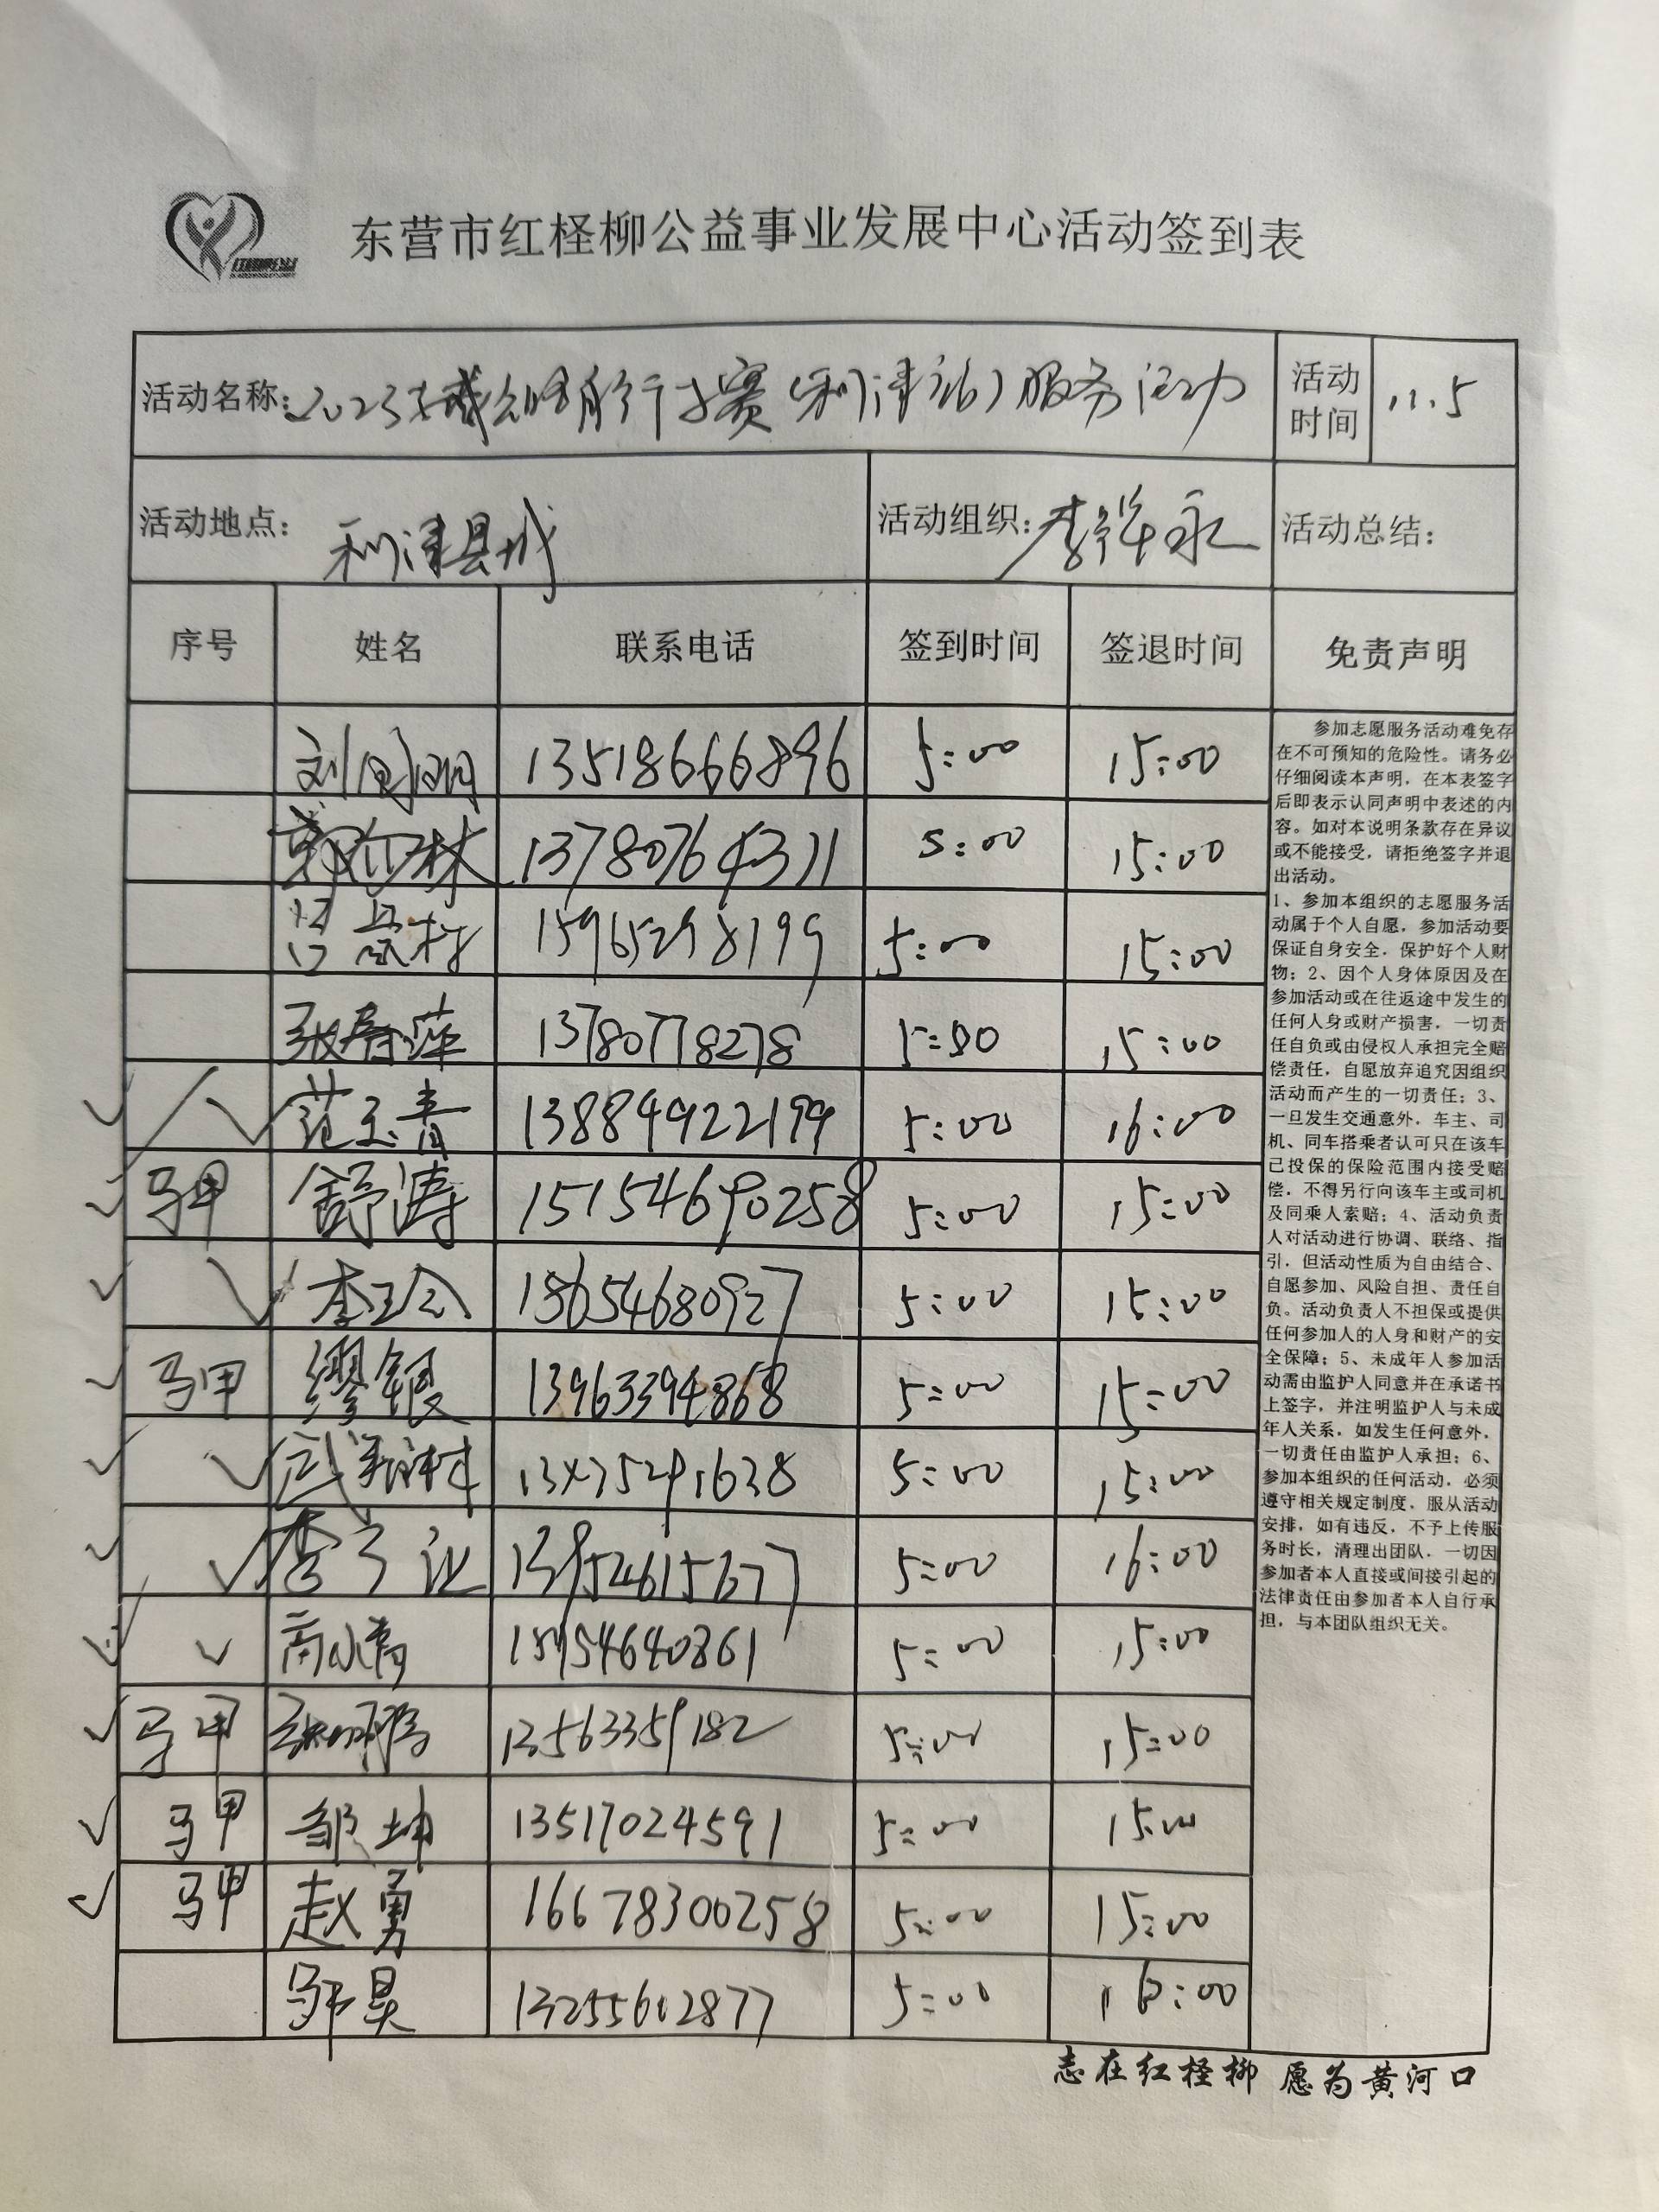 东营市红柽柳公益事业发展中心活动签到表
活动名称: 2023 赛(利津站)服务活动
活动时间 11.5
活动地点: 利津县城
活动组织: 李 永
活动总结:
序号 姓名 联系电话 签到时间 签退时间 免责声明
刘 明 13518666896 5:00 15:00
林 13780764311 5:00 15:00
吕景村 15965298199 5:00 15:00
张寿萍 13780778278 5:00 15:00
范玉青 13884992219 5:00 16:00
马甲 舒涛 15154690258 5:00 15:00
李玉玲 18654680927 5:00 15:00
马甲 缪银 13963394868 5:00 15:00
武 村 5:00 15:00
李 让 5:00 16:00
15954640861 5:00 15:00
马甲 张 鹏 13563359182 5:00 15:00
马甲 邹坤 13517024591 5:00 15:00
马甲 赵勇 16678300258 5:00 15:00
昊 13255602877 5:00 16:00
参加志愿服务活动难免存
在不可预知的危险性。请务必
仔细阅读本声明，在本表签字
后即表示认同声明中表述的内
容。如对本说明条款存在异议
或不能接受，请拒绝签字并退
出活动。
1、参加本组织的志愿服务活
动属于个人自愿，参加活动要
保证自身安全，保护好个人财
物；2、因个人身体原因及在
参加活动或在往返途中发生的
任何人身或财产损害，一切责
任自负或由侵权人承担完全赔
偿责任，自愿放弃追究因组织
活动而产生的一切责任；3、
一旦发生交通意外，车主、司
机、同车搭乘者认可只在该车
已投保的保险范围内接受赔
偿，不得另行向该车主或司机
及同乘人索赔；4、活动负责
人对活动进行协调、联络、指
引，但活动性质为自由结合、
自愿参加、风险自担、责任自
负。活动负责人不担保或提供
任何参加人的人身和财产的安
全保障；5、未成年人参加活
动需由监护人同意并在承诺书
上签字，并注明监护人与未成
年人关系，如发生任何意外，
一切责任由监护人承担；6、
参加本组织的任何活动，必须
遵守相关规定制度，服从活动
安排，如有违反，不予上传服
务时长，清理出团队，一切因
参加者本人直接或间接引起的
法律责任由参加者本人自行承
担，与本团队组织无关。
志在红柽柳 愿为黄河口